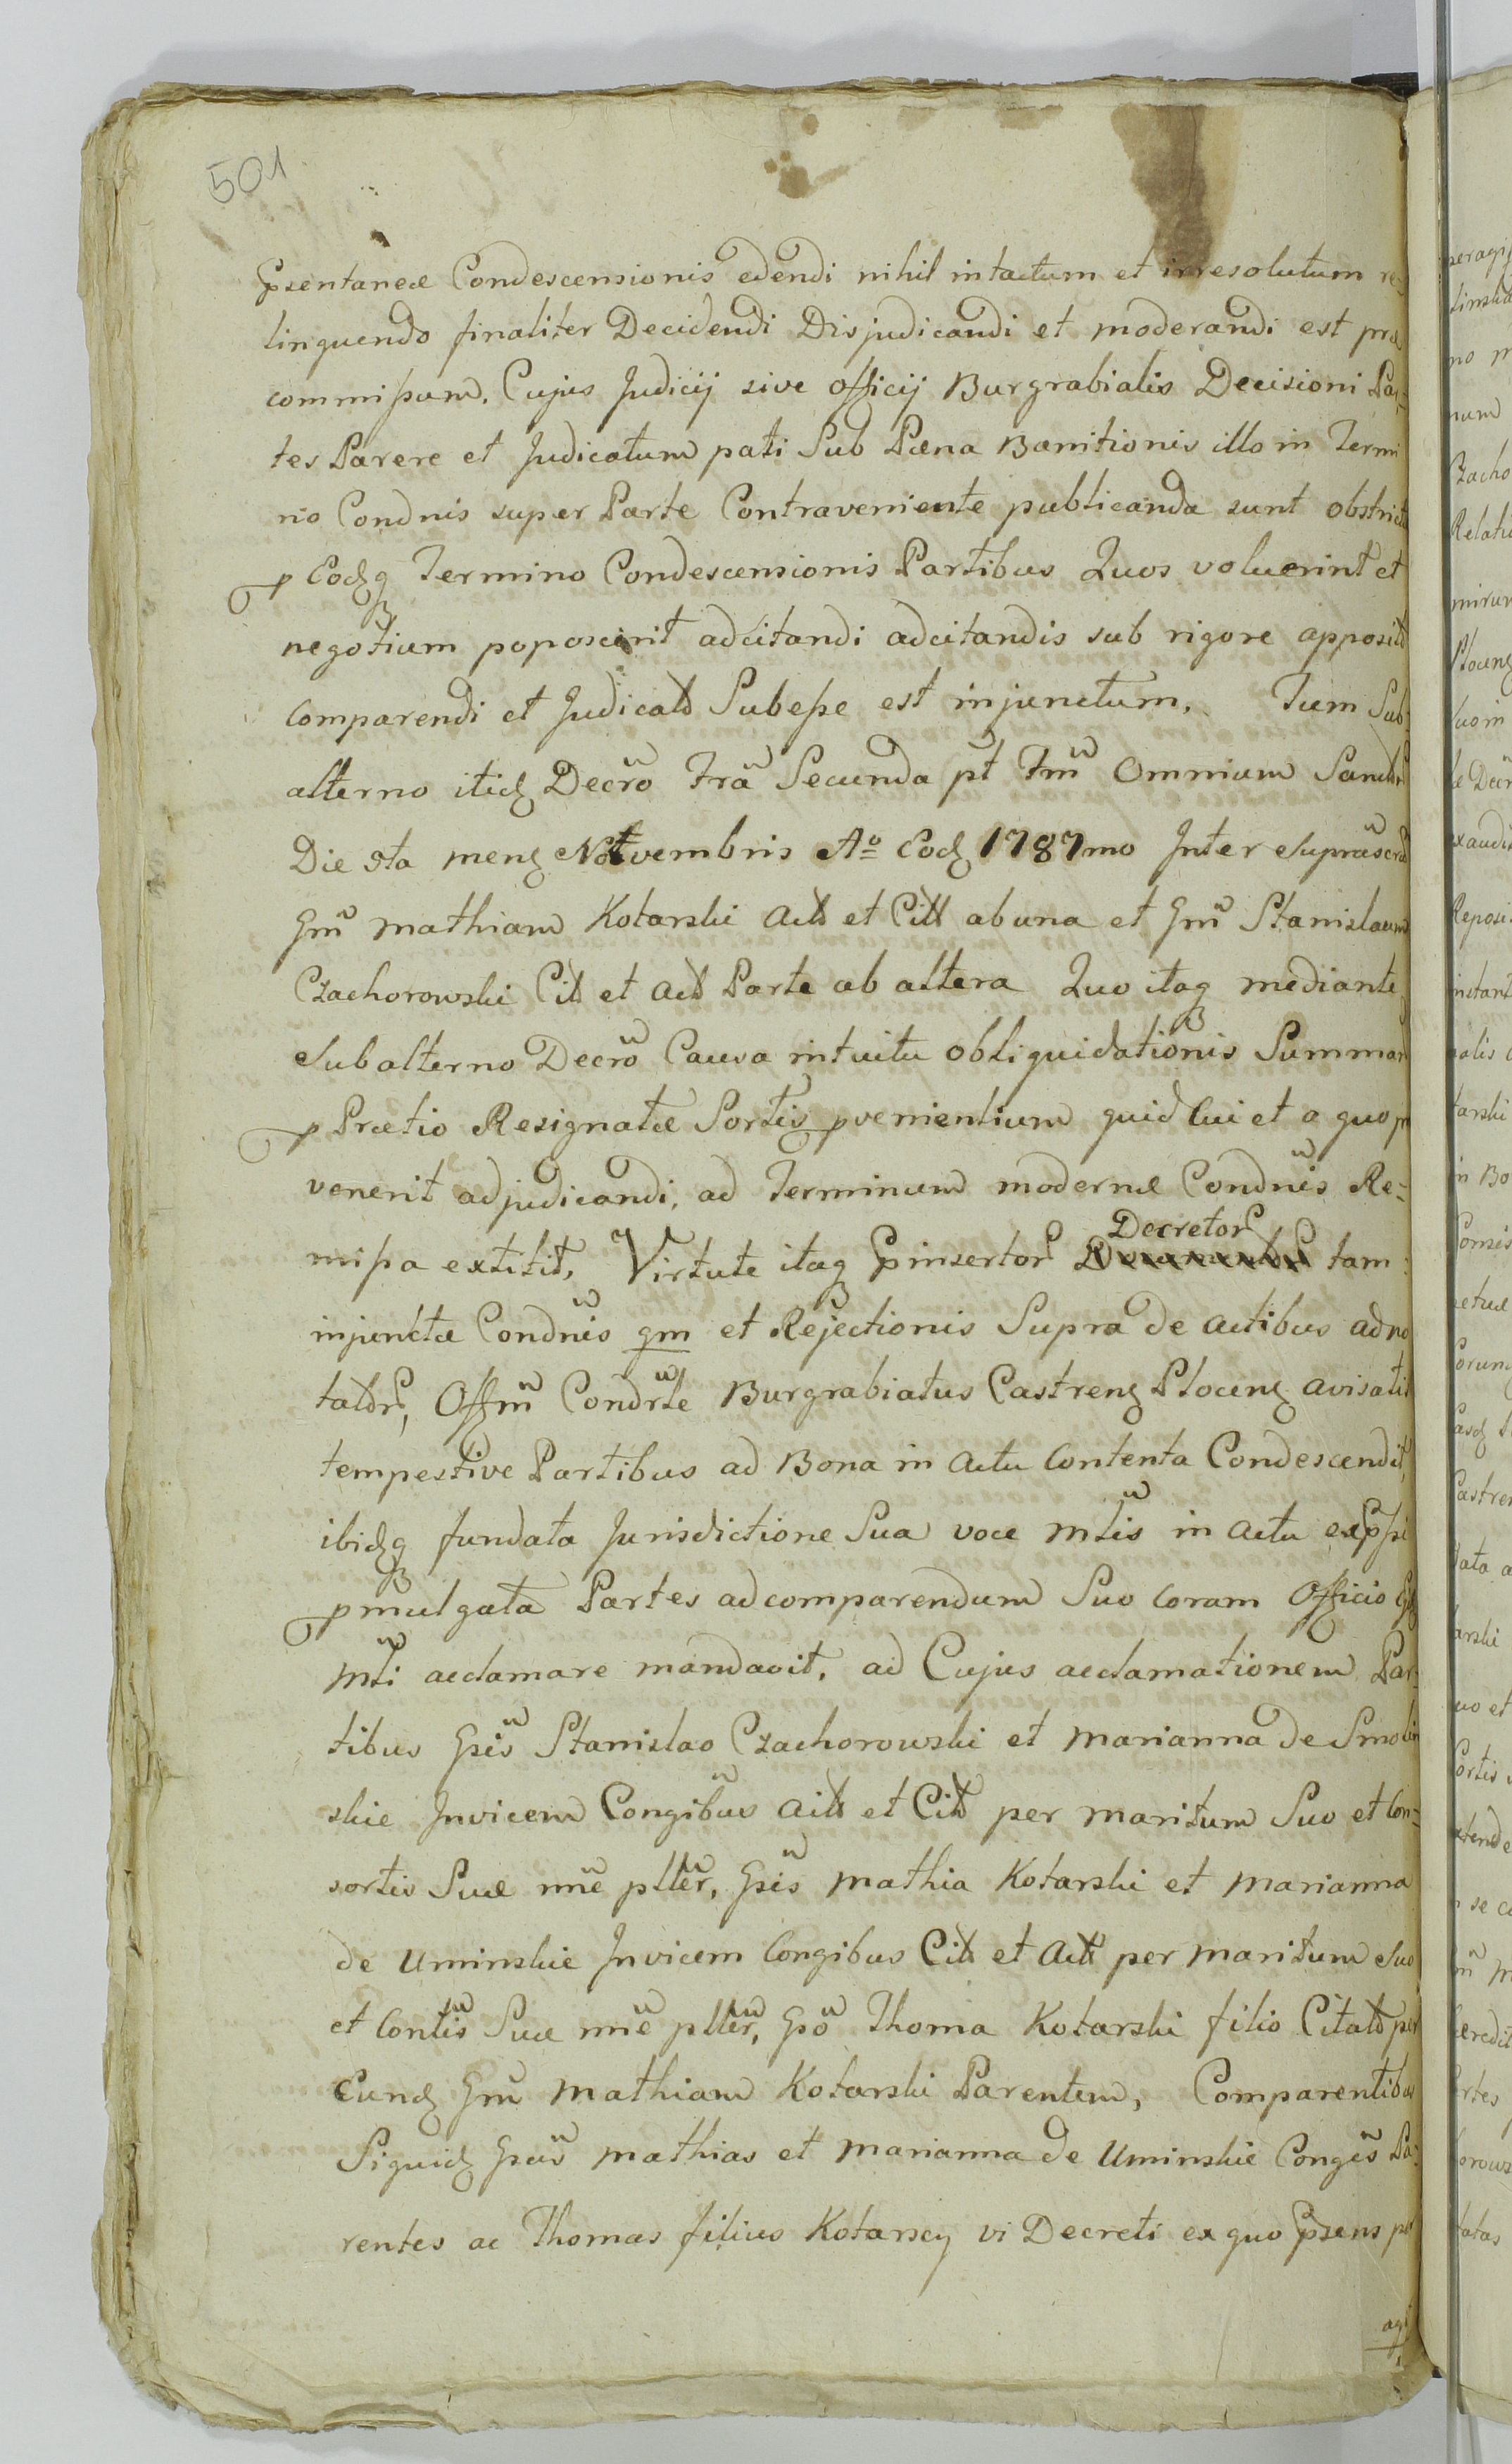 501
Pśentaneæ Condescensionis edendi nihil intactum et irresolutum re-
linquendo finaliter Decidendi Disjudicandi et moderandi est præ
commissum. Cujus Judicij sive officij Burgrabialis Decisioni Par-
tes Parere et Judicatum pati Sub Pæna Banitionis illo in Termi
no Condnis super Parte Contraveniente publicanda sunt obstrictæ
p Eodq Termino Condescensionis Partibus Quos voluerint et
negotium poposcerit adcitandi adcitandis sub rigore apposito
comparendi et Judicato Subesse est injunctum. Tum Sub-
alterno itid Decro Fra Secunda pt Fm Omnium Sanctor
Die 5ta mens Novembris Ao Eod 1787mo Inter Suprascr
Gm Mathiam Kotarski Act et Citt ab una et Gm Stanislaum
Czachorowski Cit et Act Parte ab altera Quo itaq mediante
Subalterno Decro Causa intuitu obliquidationis Summar
p Prætio Resignatæ Sortis pvenientium quid Cui et a quo p
venerit adjudicandi, ad Terminum modernæ Condnis Re-
missa extitit. Virtute itaq Pinsertor Decretor tam
injunctæ Condnis qm et Rejectionis Supra de actibus adno
tator, Offm Condrle Burgrabiatus Castrens Plocens avisatis
tempestive Partibus ad Bona in Actu Contenta Condescendit,
ibidq fundata Jurisdictione Sua voce Mlis in Actu expssi
pmulgata Partes ad comparendum Suo Coram Officio
Mli acclamare mandavit. ad Cujus acclamationem Par-
tibus Gsis Stanislao Czachorowski et Marianna de Smolin
skie Invicem Congibus Actt et Citt per Maritum Suo et Con-
sortis Suæ nne plter, Gsis Mathia Kotarski et Marianna
de Uminskie Invicem Congibus Citt et Actt per Maritum Suo
et Contis Suæ nne plter, Gso Thoma Kotarski filio Citato per
Eund Gm Mathiam Kotarski Parentem, Comparentibus
Siquid Gsus Mathias et Marianna de Uminskie Conges Pa-
rentes ac Thomas filius Kotarscy vi Decreti ex quo Psens p